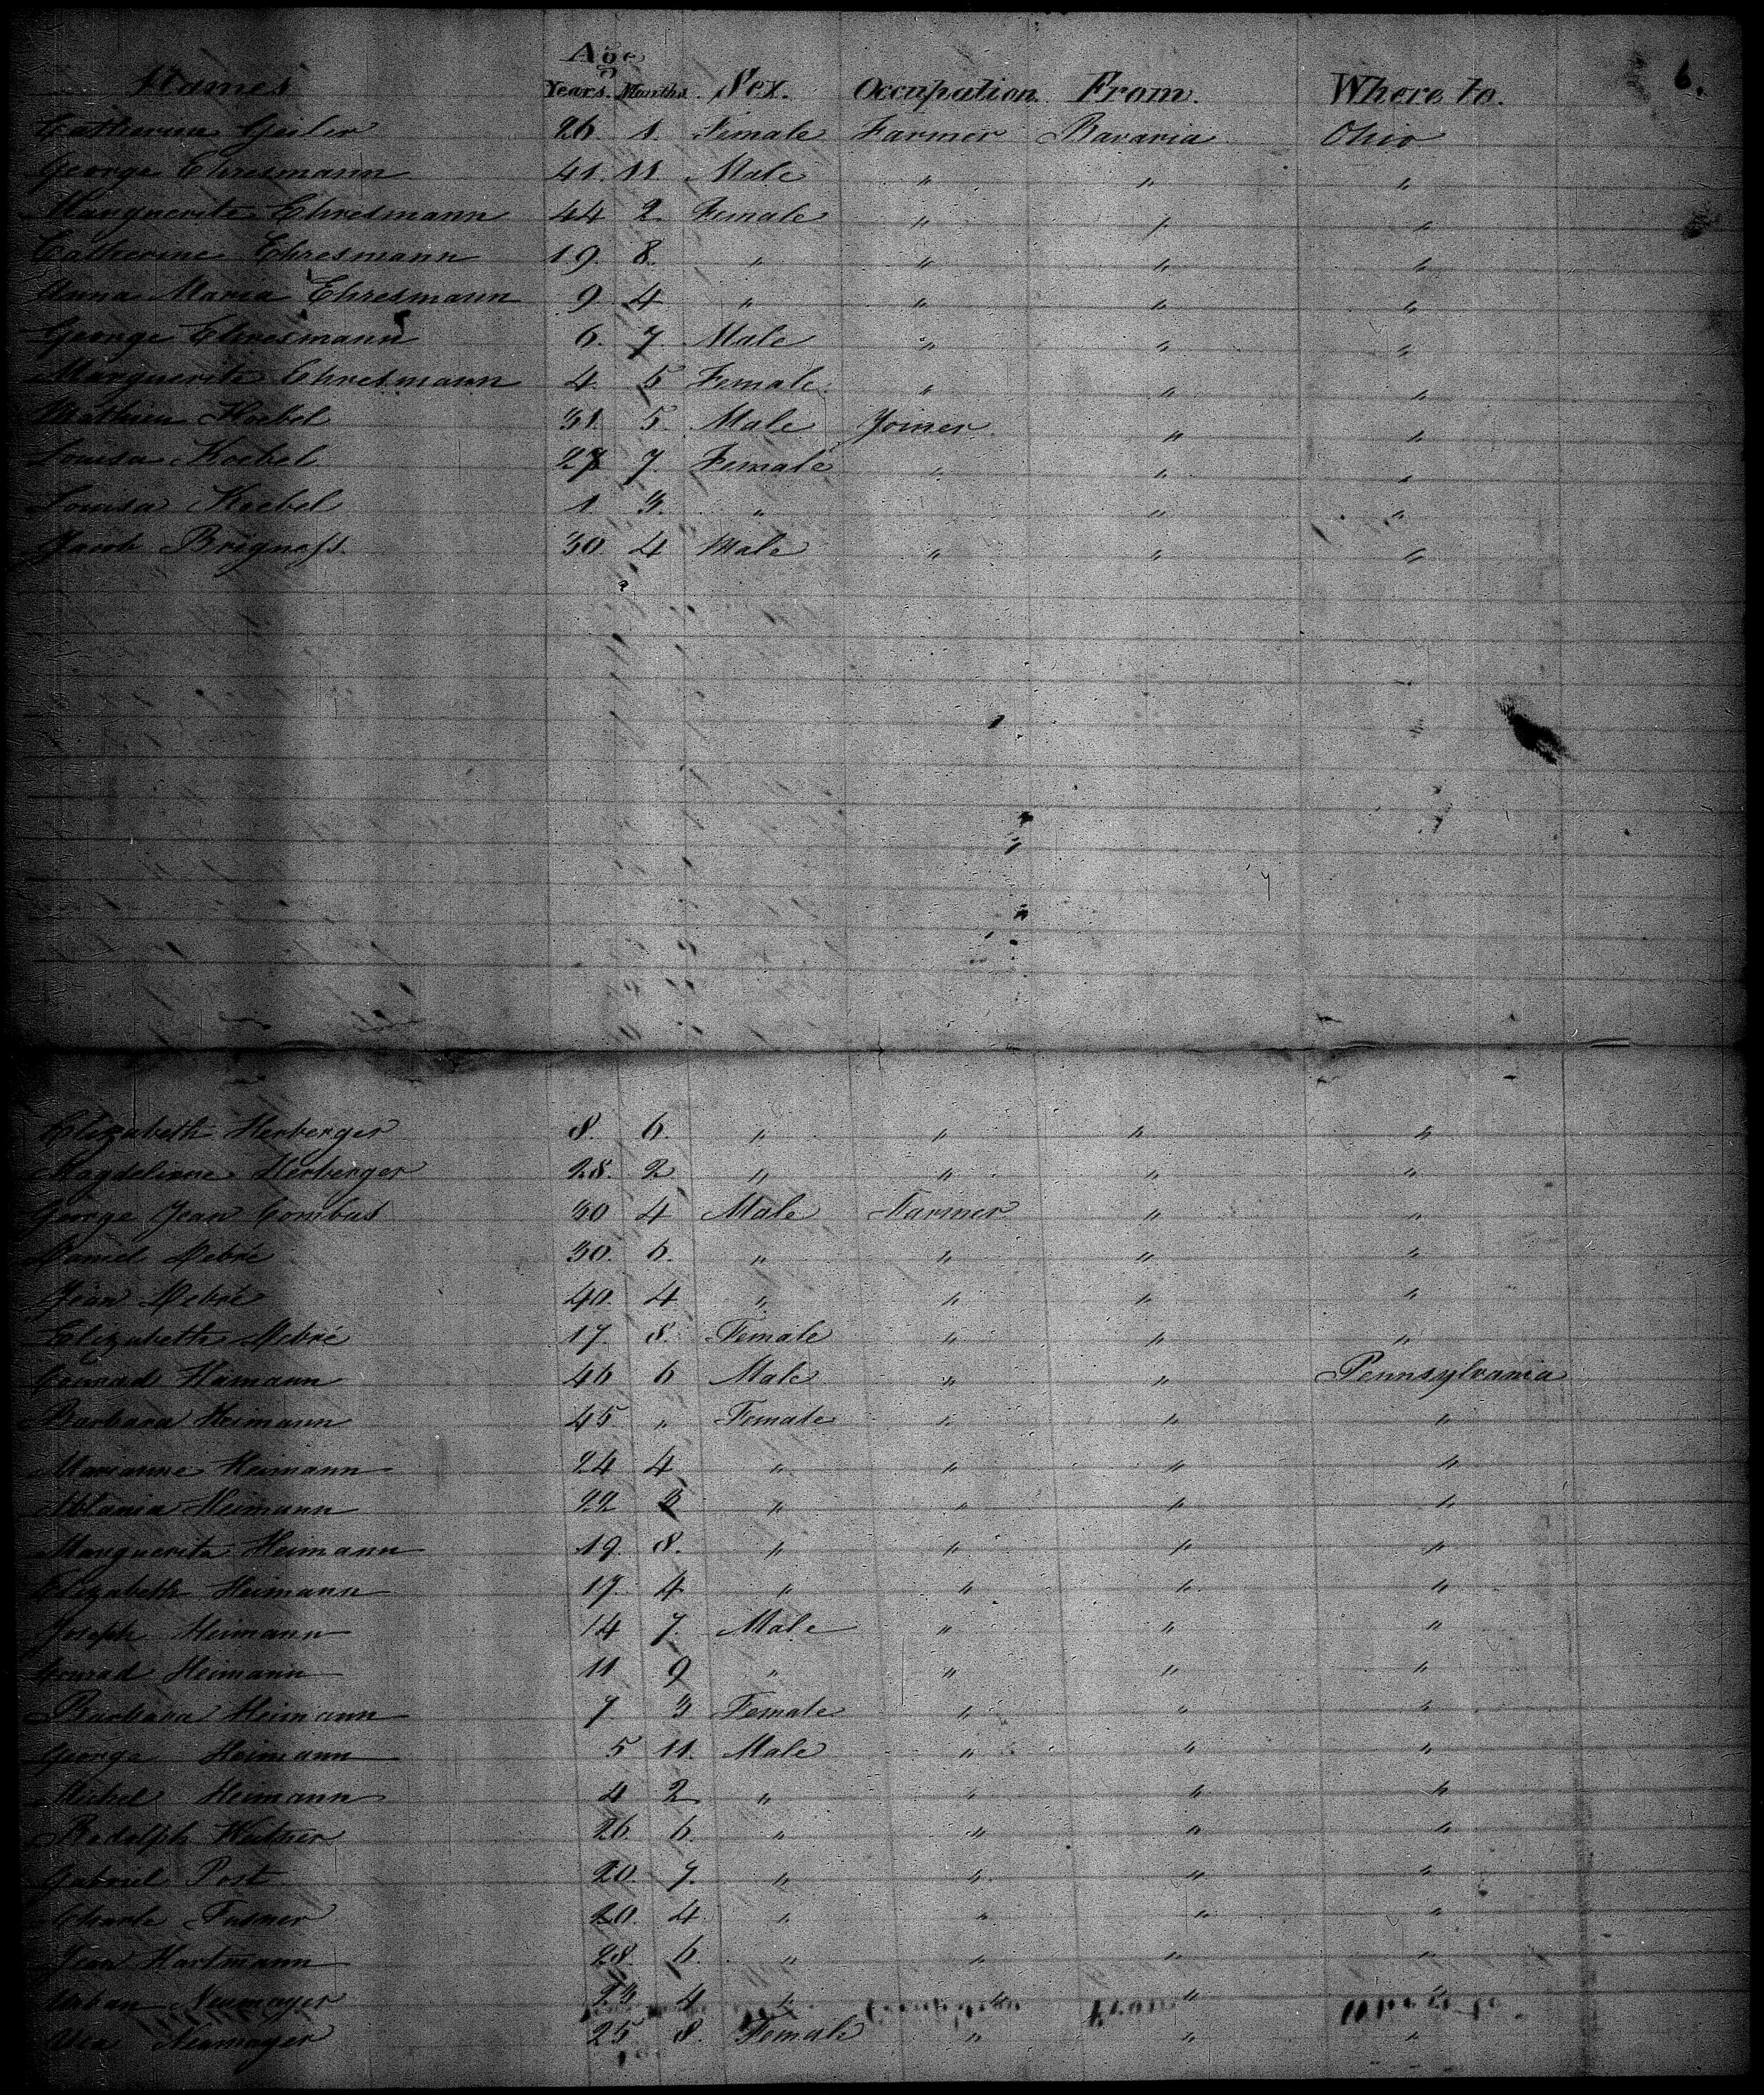 6.
Names Age Years. Months. Sex. Occupation From. Where to.
Catherine Geiler 26 1. Female Farmer Bavaria Ohio
George Ehresmann 41. 11 Male " " "
Marguerite Ehresmann 44 2. Female " " "
Catherine Ehresmann 19. 8. " " " "
Anna Maria Ehresmann 9 4 " " " "
George Ehresmann 6. 7. Male " " "
Marguerite Ehresmann 4. 5 Female " " "
Mathieu Koebel 31. 5. Male Joiner " "
Louisa Koebel 27 7. Female " " "
Louisa Koebel 1 3. " " "
Jacob 30. 4 Male " " "
Elizabeth Herberger 8. 6. " " " "
Magdelinne Herberger 28. 2 " " " "
George Jean Combus 30 4 Male Farmer " "
Daniel Debré 30. 6. " " " "
Jean Debré 40. 4 " " " "
Elizabeth Debré 17 8. Female " " "
Conrad Hamann 46 6 Male " " Pennsylvania
Barbara Heimann 45 " Female " " "
Marianne Heimann 24 4 " " " "
Heimann 22 3 " " " "
Marguerite Heimann 19. 8. " " " "
Elizabeth Heimann 17. 4 " " " "
Joseph Heimann 14 7. Male " " "
Conrad Heimann 11 9 " " " "
Barbara Heimann 7. 3 Female " " "
George Heimann 5 11. Male " " "
Michel Heimann 4 2 " " " "
Rodolph 26. 6. " " " "
Gabriel Post 20. 7. " " " "
Charle Fusner 20. 4. " " " "
Jean Hartmann 28. 6. " " " "
Urban Neumayer 23 4 " " " "
Neumayer 25 8. Female " " "